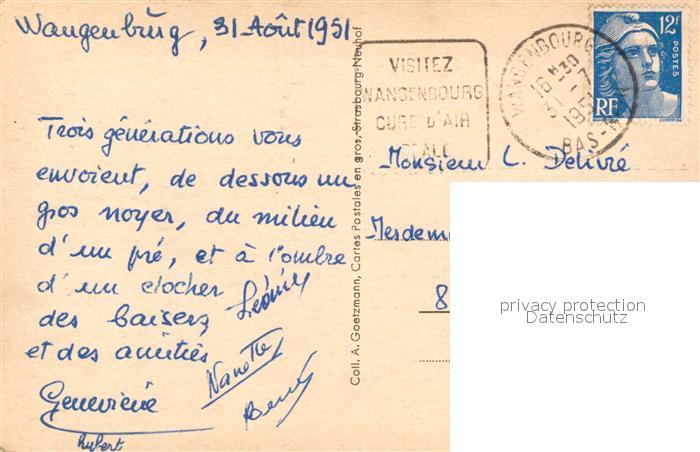 Wangenburg, 31 Août 1951
Trois générations vous
envoient, de dessous un
gros noyer, du milieu
d'un pré, et à l'ombre
d'un clocher
des baisers
et des amitiés
Geneviève
Nanette
Hubert
Coll. A. Goetzmann, Cartes Postales en gros, Strasbourg-Neuhof
VISITEZ
WANGENBOURG
CURE D'AIR
WANGENBOURG
16H30
31-7
195
BAS-
12F
POSTES
RF
Monsieur L. Delivré
Mesdem
8
privacy protection
Datenschutz